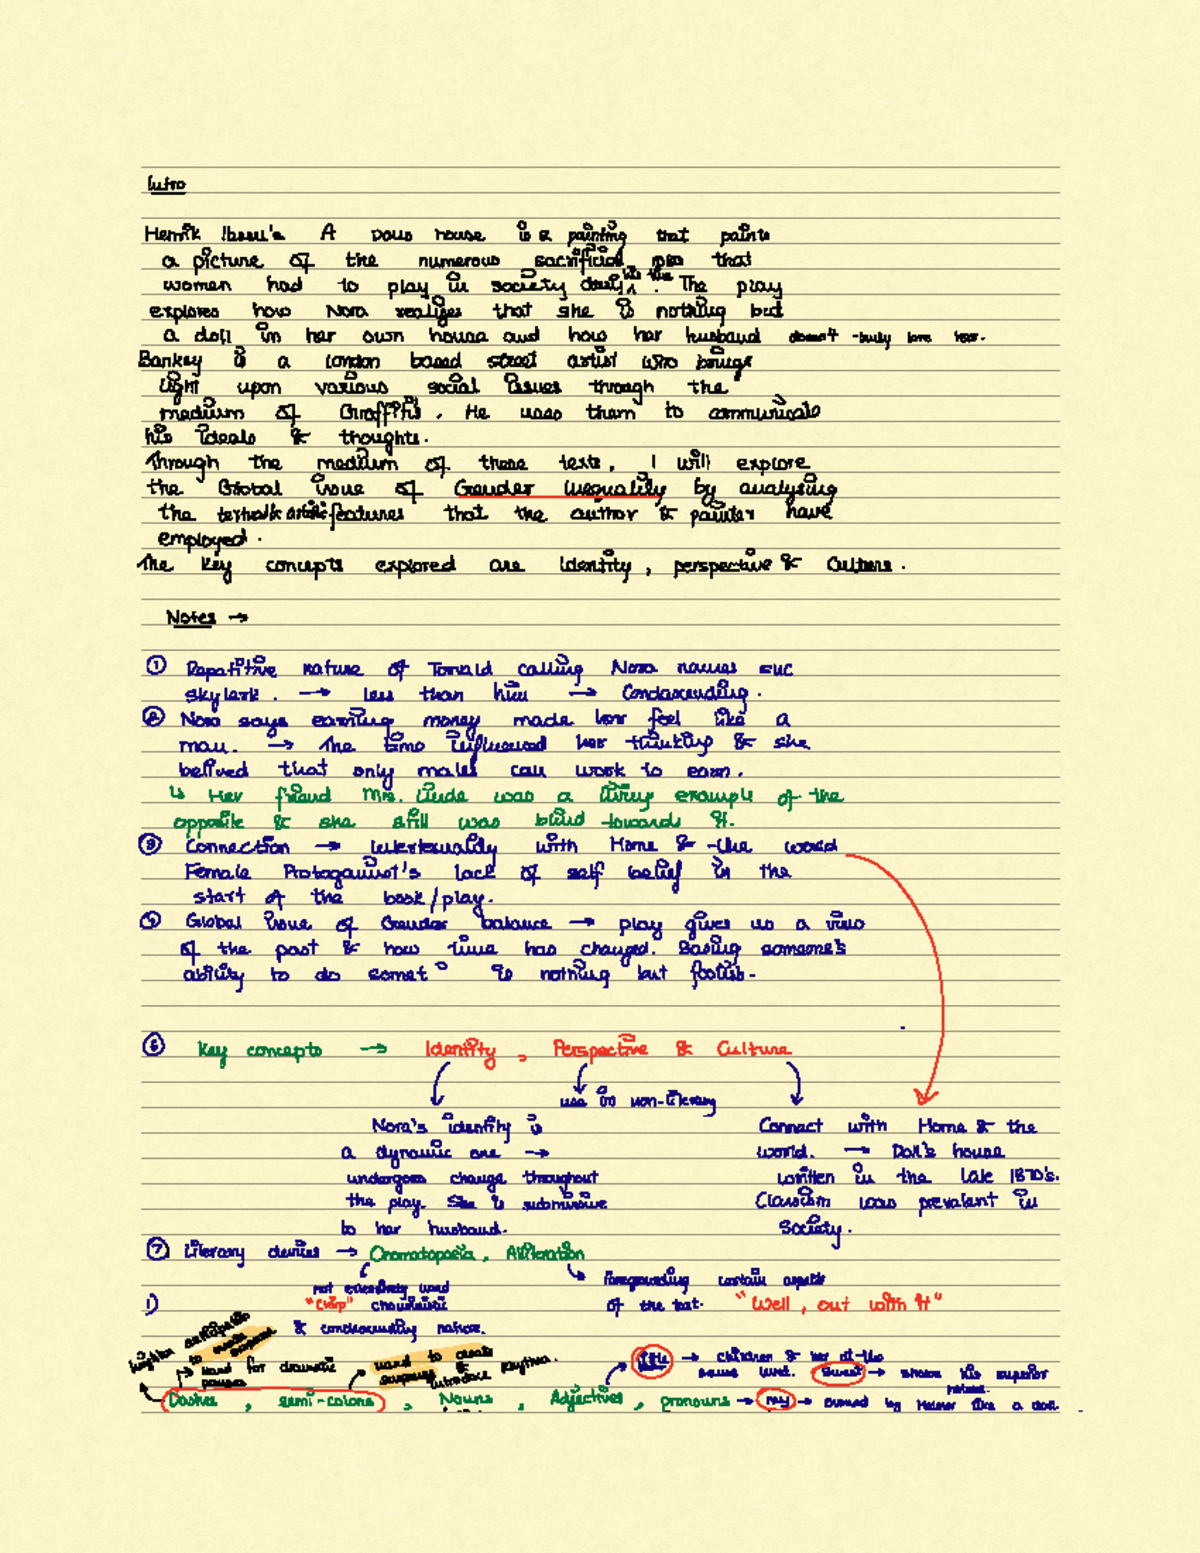 Intro
Henrik Ibsen's A Dolls house is a painting that paints
a picture of the numerous sacrificial that
women had to play in society The play
explores how Nora realizes that she is nothing but
a doll in her own house and how her husband doesn't truly love her.
Banksy is a London based street artist who brings
light upon various social issues through the
medium of Graffiti. He uses them to communicate
his ideals & thoughts.
Through the medium of these texts, I will explore
the Global issue of Gender Inequality by analysing
the features that the author & painter have
employed.
The key concepts explored are Identity, perspective & Culture.
Notes →
① Repatitive nature of Torvald calling Nora names
skylark. → less than him → Condascending.
② Nora says earning money made her feel like a
man. → The time influenced her thinking & she
belived that only males can work to earn.
↳ Her friend Mrs. Linde was a living example of the
opposite & she still was blind towards it.
③ Connection → Intertextuality with Home & the world
Female Protaganist's lack of self belief in the
start of the book/play.
Global issue of Gender balance → play gives us a view
of the past & how time has changed. Basing someone's
ability to do is nothing but foolish.
⑥ Key concepts → Identity, Perspective & Culture
use in non-literary
Nora's identity is
a dynamic one →
undergoes change throughout
the play. She is submissive
to her husband.
Connect with Home & the
world. → Doll's house
written in the late 1870's.
Classism was prevalent in
Society.
⑦ Literary devices → Onomatopoeia, Alliteration
not extensively used
"Chirp" chauvinistic
& condascending nature.
foregrounding certain aspects
of the text. "Well, out with it"
1)
to create
suspense
used for dramatic
pauses
used to create
suspense &
introduce
→ children & her at the
same level. Sweet → shows his superior
nature.
Dashes, semi-colons, Nouns, Adjectives, pronouns → my → owned by Helmer like a doll.